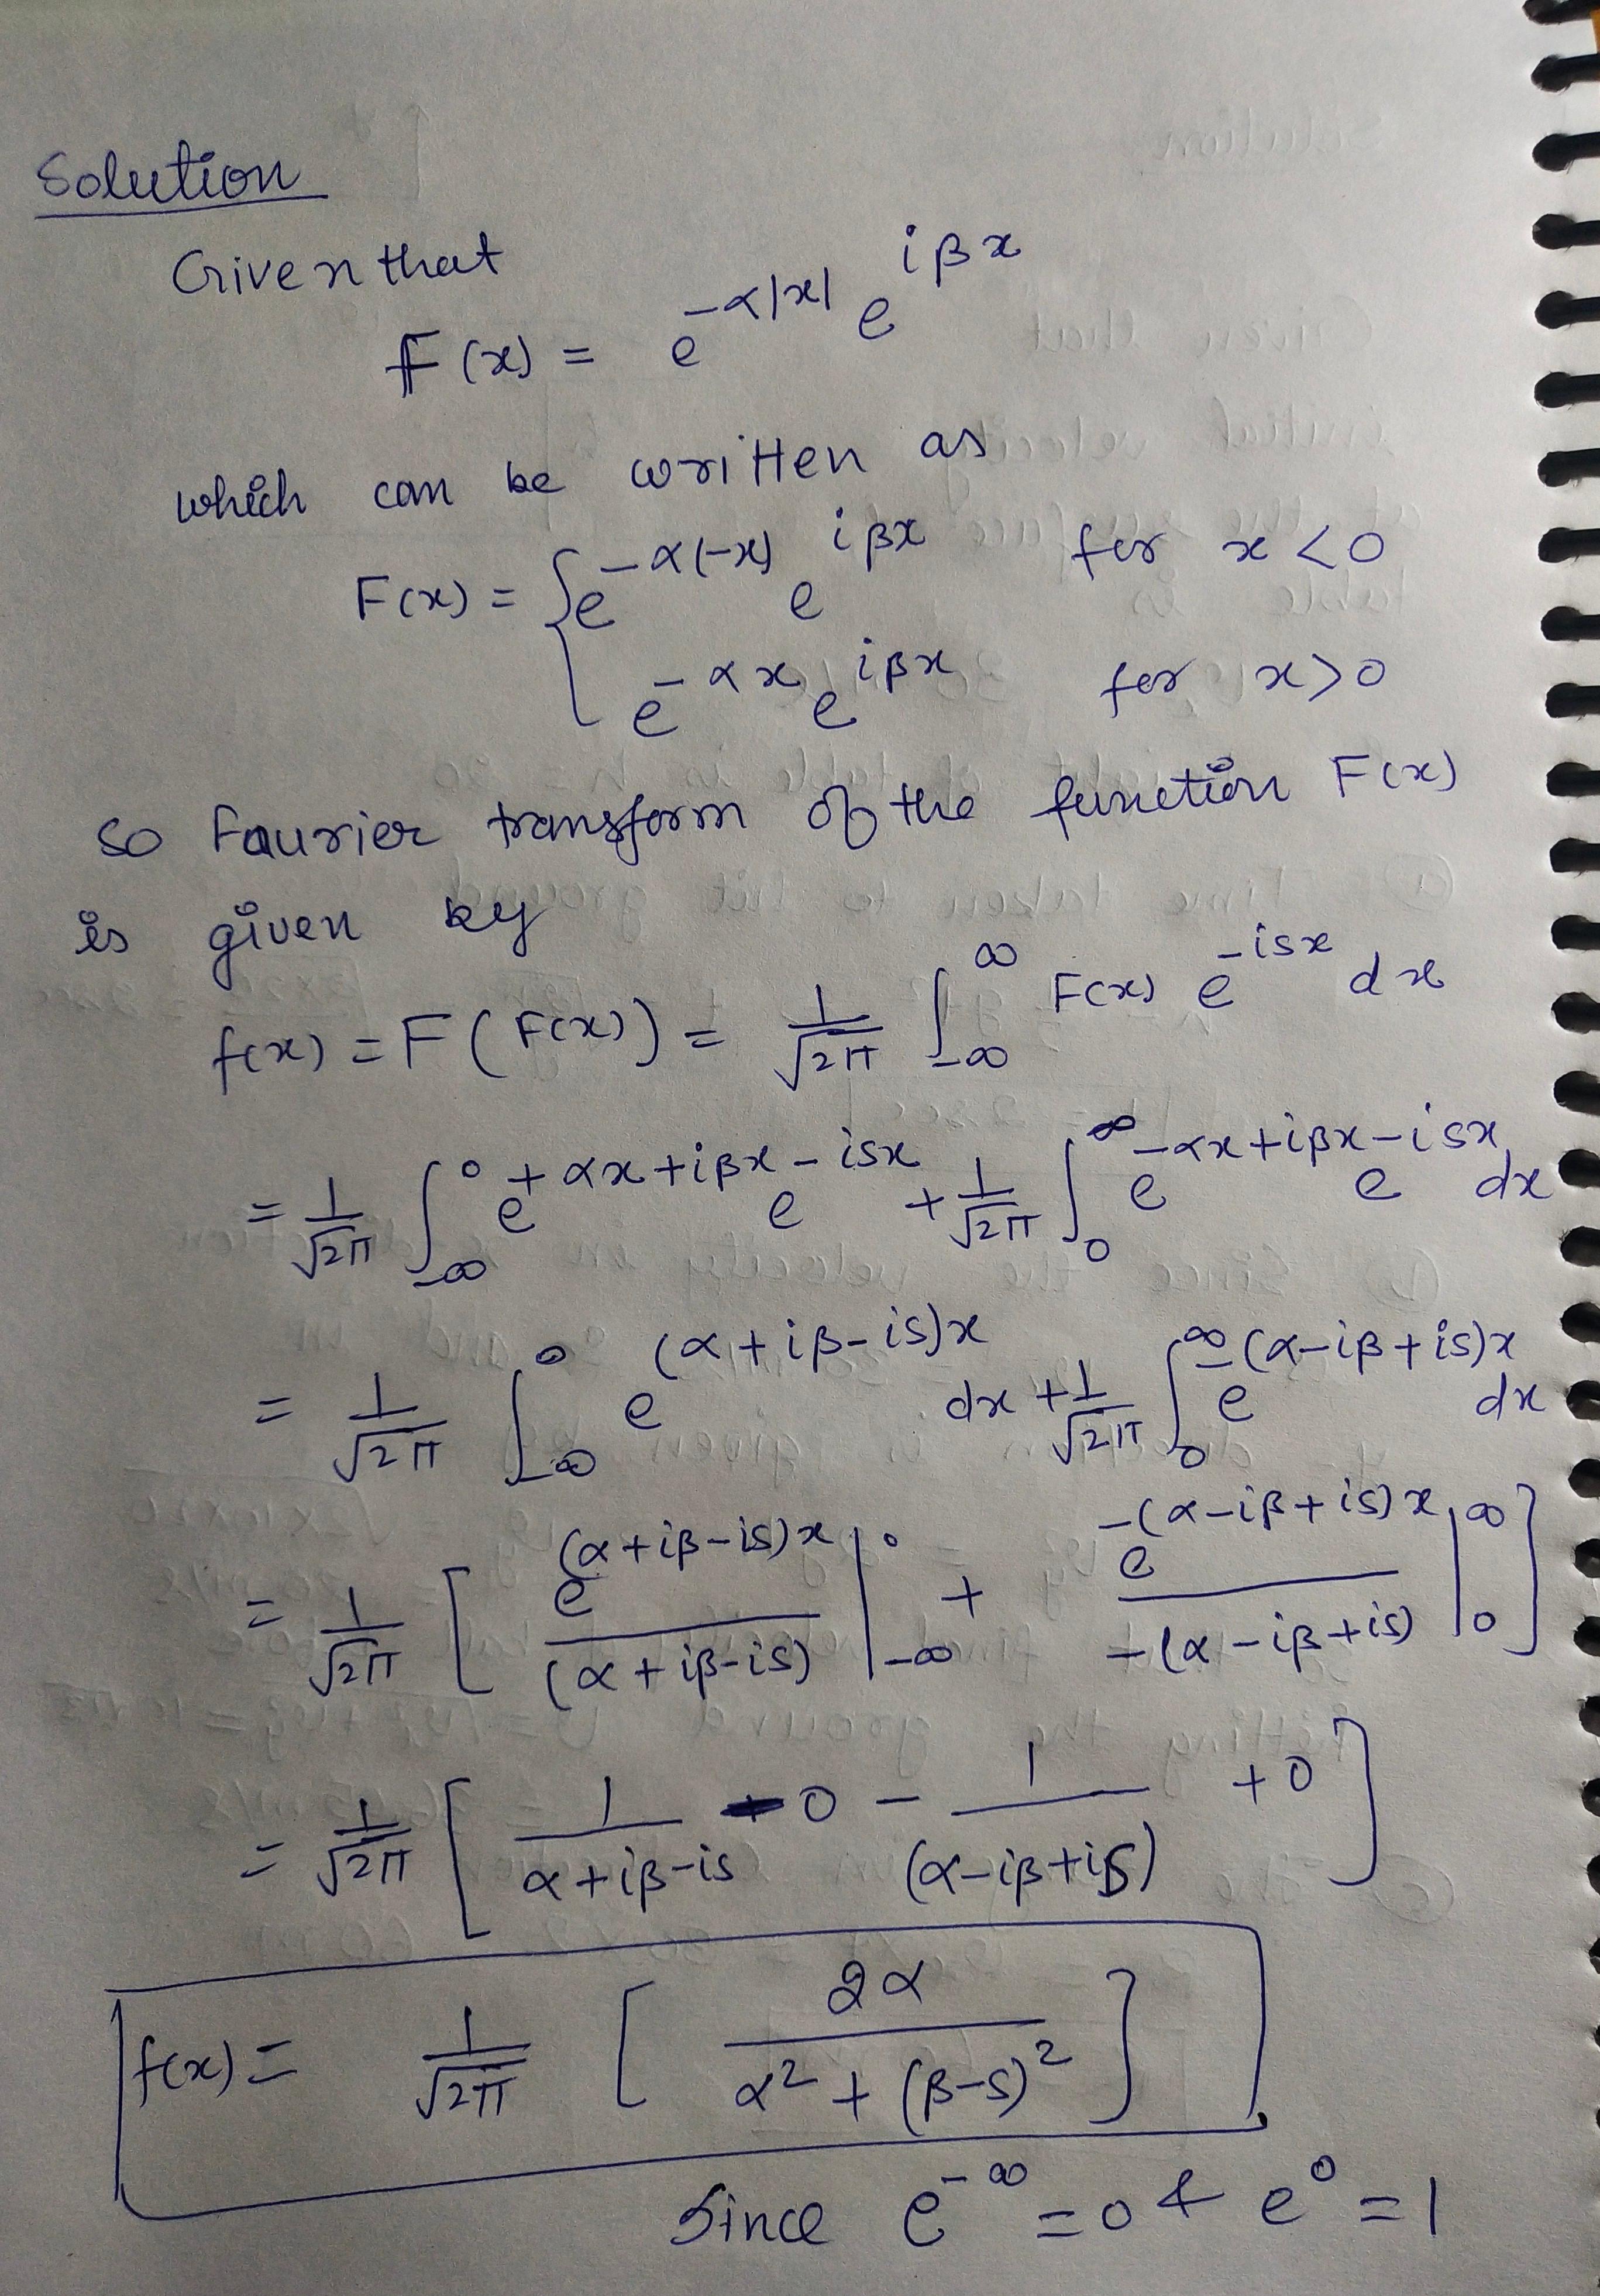 Solution
Given that
F(x) = e^{-α|x|} e^{iβx}
which can be written as
F(x) = { e^{-α(-x)} e^{iβx} for x < 0
e^{-αx} e^{iβx} for x > 0
so Fourier transform of the function F(x)
is given by
f(x) = F(F(x)) = 1/√2π ∫_{-∞}^{∞} F(x) e^{-isx} dx
= 1/√2π ∫_{-∞}^{0} e^{+αx+iβx} e^{-isx} + 1/√2π ∫_{0}^{∞} e^{-αx+iβx} e^{-isx} dx
= 1/√2π ∫_{-∞}^{0} e^{(α+iβ-is)x} dx + 1/√2π ∫_{0}^{∞} e^{-(α-iβ+is)x} dx
= 1/√2π [ e^{(α+iβ-is)x}/(α+iβ-is) |_{-∞}^{0} + e^{-(α-iβ+is)x}/-(α-iβ+is) |_{0}^{∞} ]
= 1/√2π [ 1/α+iβ-is - 0 - 1/(α-iβ+is) + 0 ]
f(x) = 1/√2π [ 2α/α² + (β-s)² ]
Since e^{-∞} = 0 & e^{0} = 1